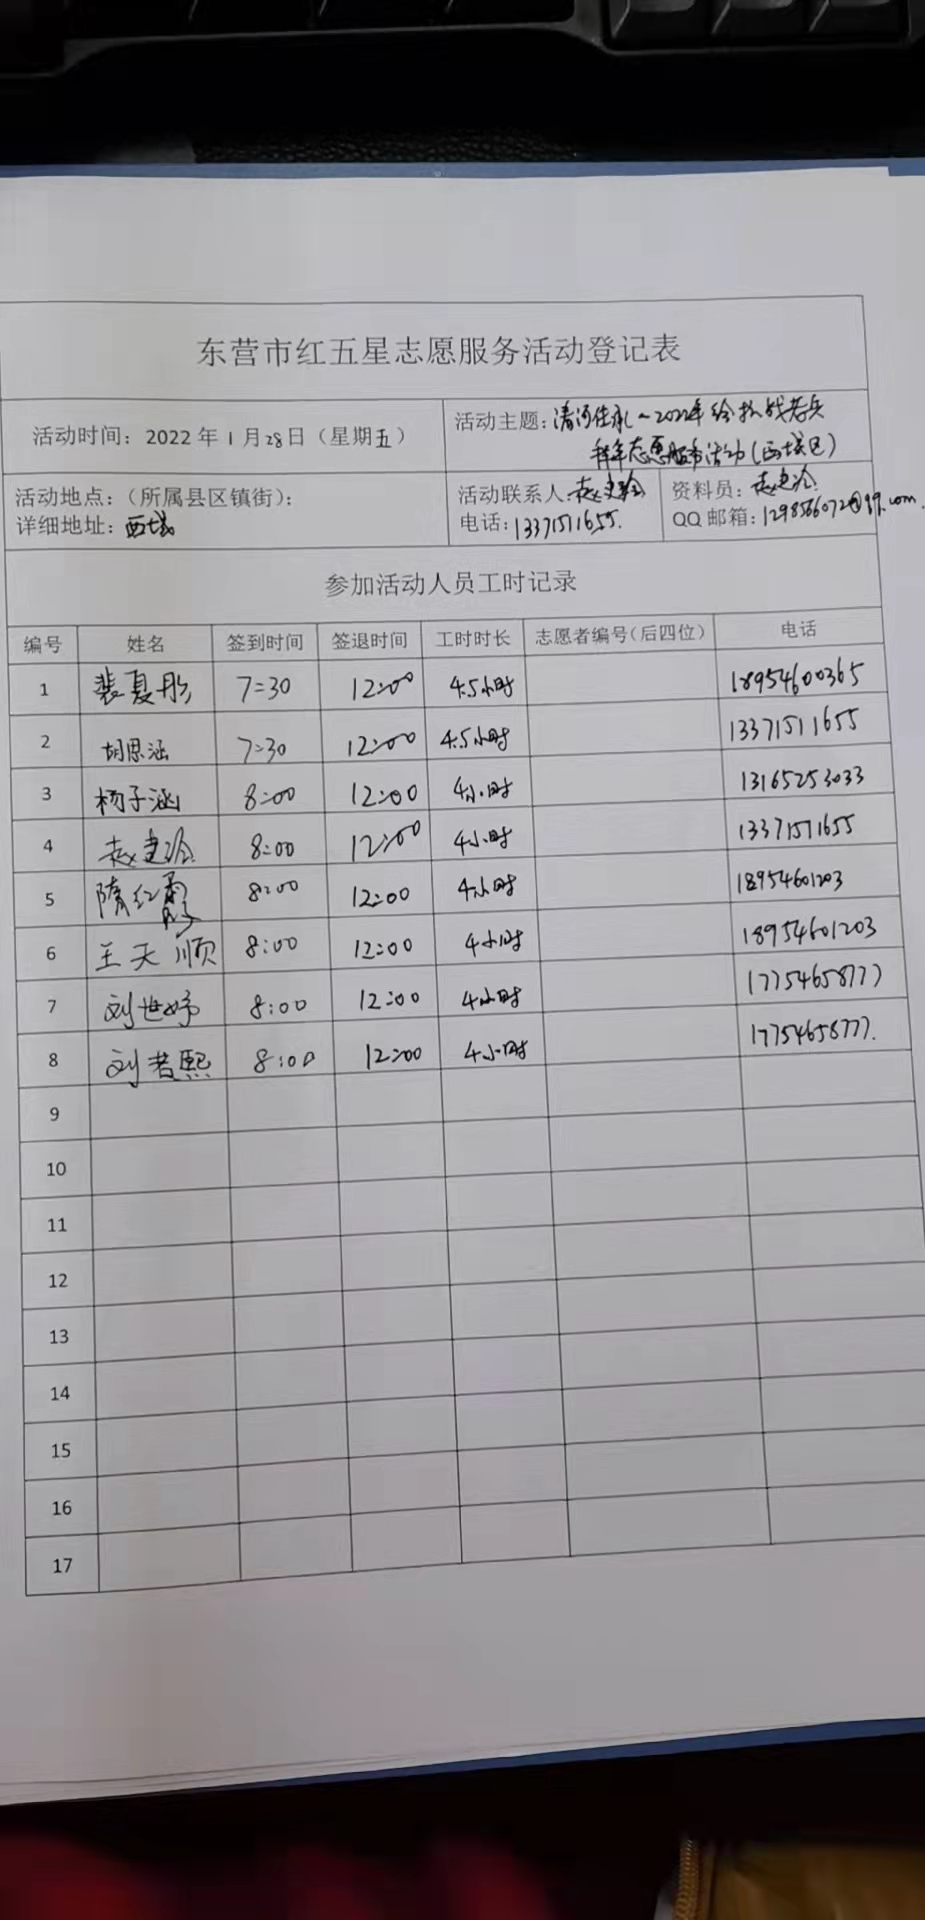 东营市红五星志愿服务活动登记表
活动时间：2022年1月28日（星期五）
活动主题：清河佳礼~2022年给抗战老兵
拜年志愿服务活动(西城区)
活动地点：（所属县区镇街）：
详细地址：西城
活动联系人：赵建玲
电话：13371571655.
资料员：赵建玲
QQ邮箱：1298566072@qq.com
参加活动人员工时记录
编号 姓名 签到时间 签退时间 工时时长 志愿者编号（后四位） 电话
1 裴夏彤 7:30 12:00 4.5小时 18954600365
2 胡思涵 7:30 12:00 4.5小时 13371511655
3 杨子涵 8:00 12:00 4小时 13165253033
4 赵建玲 8:00 12:00 4小时 13371571655
5 隋红霞 8:00 12:00 4小时 18954601203
6 王天顺 8:00 12:00 4小时 18954601203
7 刘世婷 8:00 12:00 4小时 17754658777
8 刘若熙 8:00 12:00 4小时 17754658777.
9
10
11
12
13
14
15
16
17